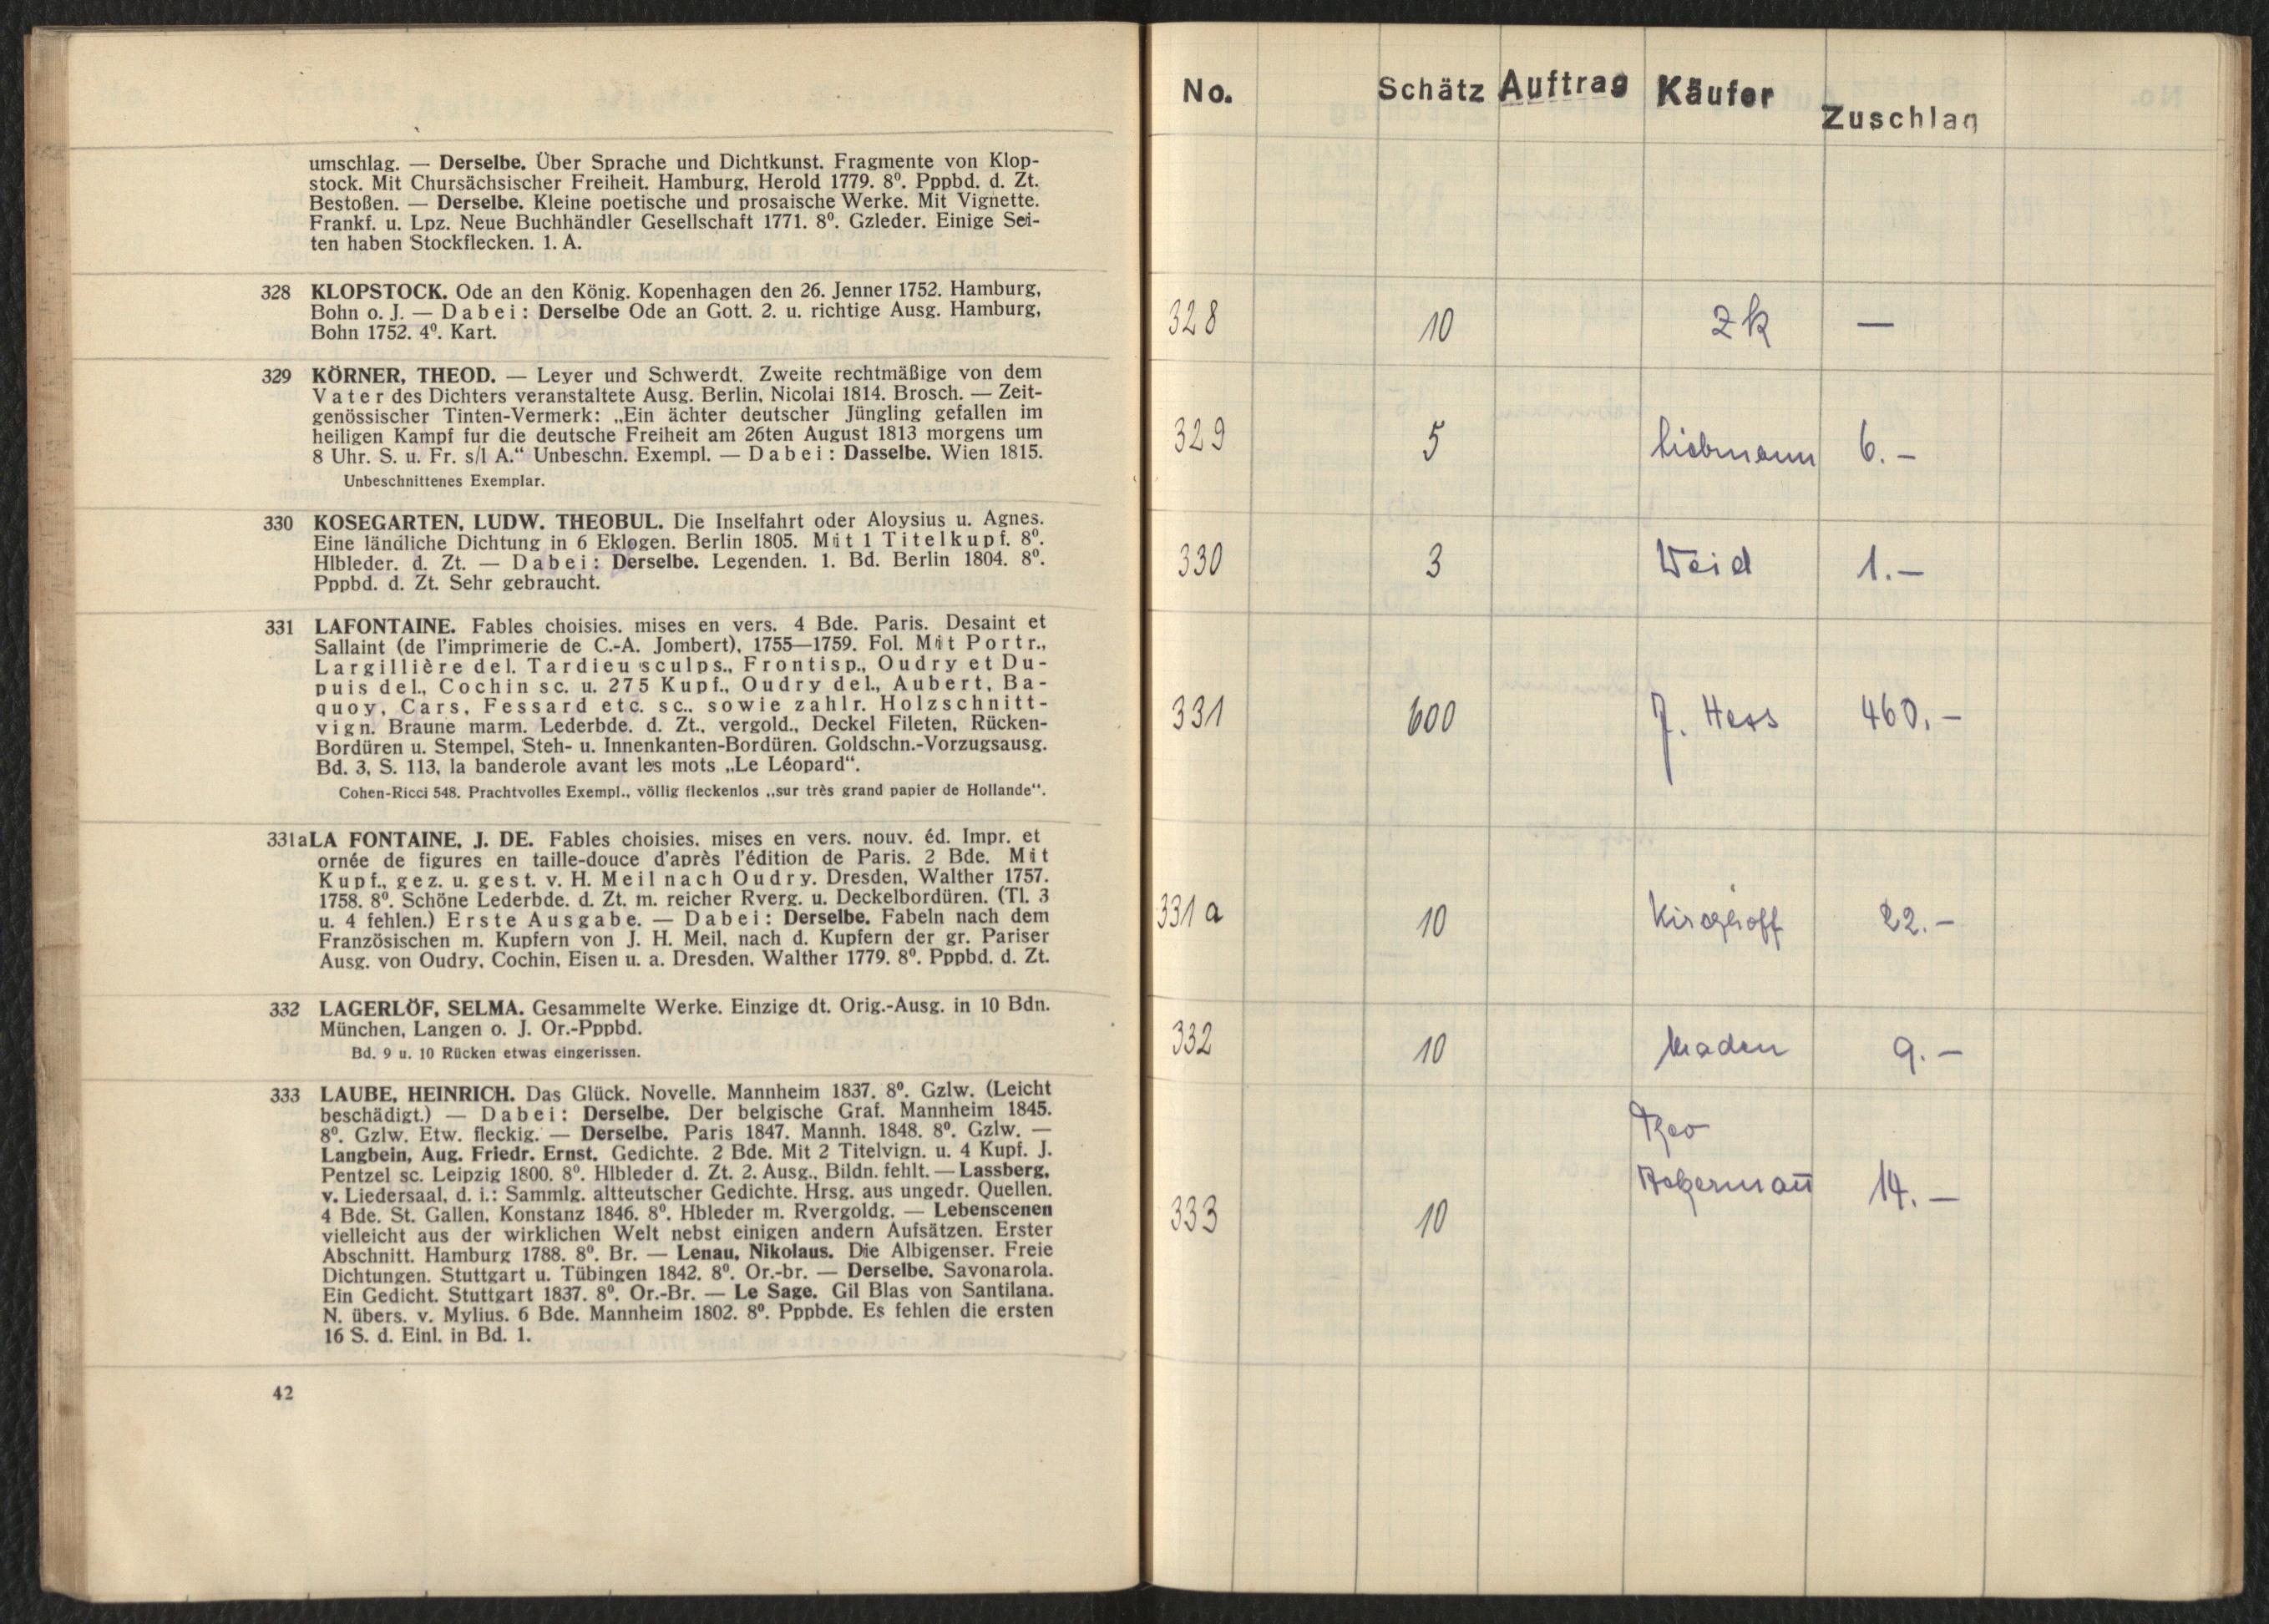 umschlag. — Derselbe. Über Sprache und Dichtkunst. Fragmente von Klop-
stock. Mit Chursächsischer Freiheit. Hamburg, Herold 1779. 8⁰. Pppbd. d. Zt.
Bestoßen. — Derselbe. Kleine poetische und prosaische Werke. Mit Vignette.
Frankf. u. Lpz. Neue Buchhändler Gesellschaft 1771. 8⁰. Gzleder. Einige Sei-
ten haben Stockflecken. 1. A.
328 KLOPSTOCK. Ode an den König. Kopenhagen den 26. Jenner 1752. Hamburg,
Bohn o. J. — Dabei: Derselbe Ode an Gott. 2. u. richtige Ausg. Hamburg,
Bohn 1752. 4⁰. Kart.
329 KÖRNER, THEOD. — Leyer und Schwerdt. Zweite rechtmäßige von dem
Vater des Dichters veranstaltete Ausg. Berlin, Nicolai 1814. Brosch. — Zeit-
genössischer Tinten-Vermerk: „Ein ächter deutscher Jüngling gefallen im
heiligen Kampf fur die deutsche Freiheit am 26ten August 1813 morgens um
8 Uhr. S. u. Fr. s/l A.“ Unbeschn. Exempl. — Dabei: Dasselbe. Wien 1815.
Unbeschnittenes Exemplar.
330 KOSEGARTEN, LUDW. THEOBUL. Die Inselfahrt oder Aloysius u. Agnes.
Eine ländliche Dichtung in 6 Eklogen. Berlin 1805. Mit 1 Titelkupf. 8⁰.
Hlbleder. d. Zt. — Dabei: Derselbe. Legenden. 1. Bd. Berlin 1804. 8⁰.
Pppbd. d. Zt. Sehr gebraucht.
331 LAFONTAINE. Fables choisies. mises en vers. 4 Bde. Paris. Desaint et
Sallaint (de l'imprimerie de C.-A. Jombert), 1755—1759. Fol. Mit Portr.,
Largillière del. Tardieu sculps., Frontisp., Oudry et Du-
puis del., Cochin sc. u. 275 Kupf., Oudry del., Aubert, Ba-
quoy, Cars, Fessard etc. sc.. sowie zahlr. Holzschnitt-
vign. Braune marm. Lederbde. d. Zt., vergold., Deckel Fileten, Rücken-
Bordüren u. Stempel, Steh- u. Innenkanten-Bordüren. Goldschn.-Vorzugsausg.
Bd. 3, S. 113, la banderole avant les mots „Le Léopard“.
Cohen-Ricci 548. Prachtvolles Exempl., völlig fleckenlos „sur très grand papier de Hollande“.
331a LA FONTAINE, J. DE. Fables choisies. mises en vers. nouv. éd. Impr. et
ornée de figures en taille-douce d'après l'édition de Paris. 2 Bde. Mit
Kupf., gez. u. gest. v. H. Meil nach Oudry. Dresden, Walther 1757.
1758. 8⁰. Schöne Lederbde. d. Zt. m. reicher Rverg. u. Deckelbordüren. (Tl. 3
u. 4 fehlen.) Erste Ausgabe. — Dabei: Derselbe. Fabeln nach dem
Französischen m. Kupfern von J. H. Meil, nach d. Kupfern der gr. Pariser
Ausg. von Oudry, Cochin, Eisen u. a. Dresden, Walther 1779. 8⁰. Pppbd. d. Zt.
332 LAGERLÖF, SELMA. Gesammelte Werke. Einzige dt. Orig.-Ausg. in 10 Bdn.
München, Langen o. J. Or.-Pppbd.
Bd. 9 u. 10 Rücken etwas eingerissen.
333 LAUBE, HEINRICH. Das Glück. Novelle. Mannheim 1837. 8⁰. Gzlw. (Leicht
beschädigt.) — Dabei: Derselbe. Der belgische Graf. Mannheim 1845.
8⁰. Gzlw. Etw. fleckig. — Derselbe. Paris 1847. Mannh. 1848. 8⁰. Gzlw. —
Langbein, Aug. Friedr. Ernst. Gedichte. 2 Bde. Mit 2 Titelvign. u. 4 Kupf. J.
Pentzel sc. Leipzig 1800. 8⁰. Hlbleder d. Zt. 2. Ausg., Bildn. fehlt. — Lassberg,
v. Liedersaal, d. i.: Sammlg. altteutscher Gedichte. Hrsg. aus ungedr. Quellen.
4 Bde. St. Gallen, Konstanz 1846. 8⁰. Hbleder m. Rvergoldg. — Lebenscenen
vielleicht aus der wirklichen Welt nebst einigen andern Aufsätzen. Erster
Abschnitt. Hamburg 1788. 8⁰. Br. — Lenau, Nikolaus. Die Albigenser. Freie
Dichtungen. Stuttgart u. Tübingen 1842. 8⁰. Or.-br. — Derselbe. Savonarola.
Ein Gedicht. Stuttgart 1837. 8⁰. Or.-Br. — Le Sage. Gil Blas von Santilana.
N. übers. v. Mylius. 6 Bde. Mannheim 1802. 8⁰. Pppbde. Es fehlen die ersten
16 S. d. Einl. in Bd. 1.
42
No. Schätz Auftrag Käufer Zuschlag
328 10 Zk —
329 5 Liebmann 6.—
330 3 Weid 1.—
331 600 J. Hess 460.—
331a 10 Kirchhoff 22.—
332 10 9.—
333 10 14.—